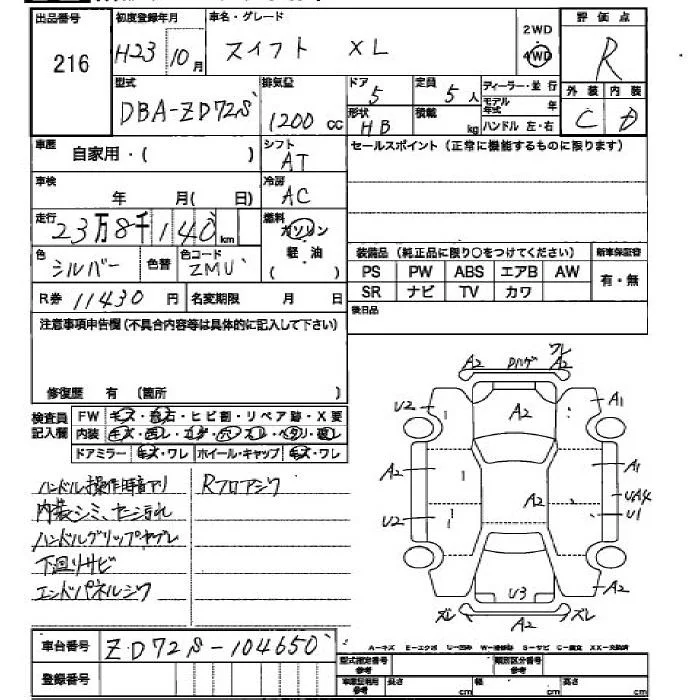 出品番号 初度登録年月 車名・グレード 2WD 評価点
216 H23 10月 スイフト XL 4WD R
型式 排気量 ドア 定員 ディーラー・並行 外装 内装
DBA-ZD72S 1200cc 5 5人 モデル年式 年 C D
形状 HB 積載 kg ハンドル 左・右
車歴 自家用・( ) シフト AT セールスポイント(正常に機能するものに限ります)
車検 年 月( 日) 冷房 AC
走行 23万8千140km 燃料 ガソリン
軽油
( )
色 シルバー 色替 色コード ZMU 装備品(純正品に限り○をつけてください) 新車保証書
PS PW ABS エアB AW 有・無
R券 11430円 名変期限 月 日 SR ナビ TV カワ
注意事項申告欄(不具合内容等は具体的に記入して下さい) 後日品
修復歴 有 (箇所 )
検査員記入欄 FW キズ・飛石・ヒビ割・リペア跡・X要
内装 キズ・凹レ・コゲ・穴・スレ・ヘタリ・破レ
ドアミラー キズ・ワレ ホイール・キャップ キズ・ワレ
ハンドル操作時音アリ Rフロアシワ
内装シミ、ヤニ汚れ
ハンドルグリップヤブレ
下回りサビ
エンドパネルシワ
A2 ハゲ ワレ A2
U2 A2 A1
A2 A1
A2 UA4
U2 U1
A2 U3 A2
ズレ A2 ズレ
車台番号 ZD72S-104650
A-キズ E-エクボ U-凹み W-補修跡 S-サビ C-腐食 XX-交換済
登録番号 型式指定番号 参考 類別区分番号 参考
車庫証明用 参考 長さ cm 幅 cm 高さ cm